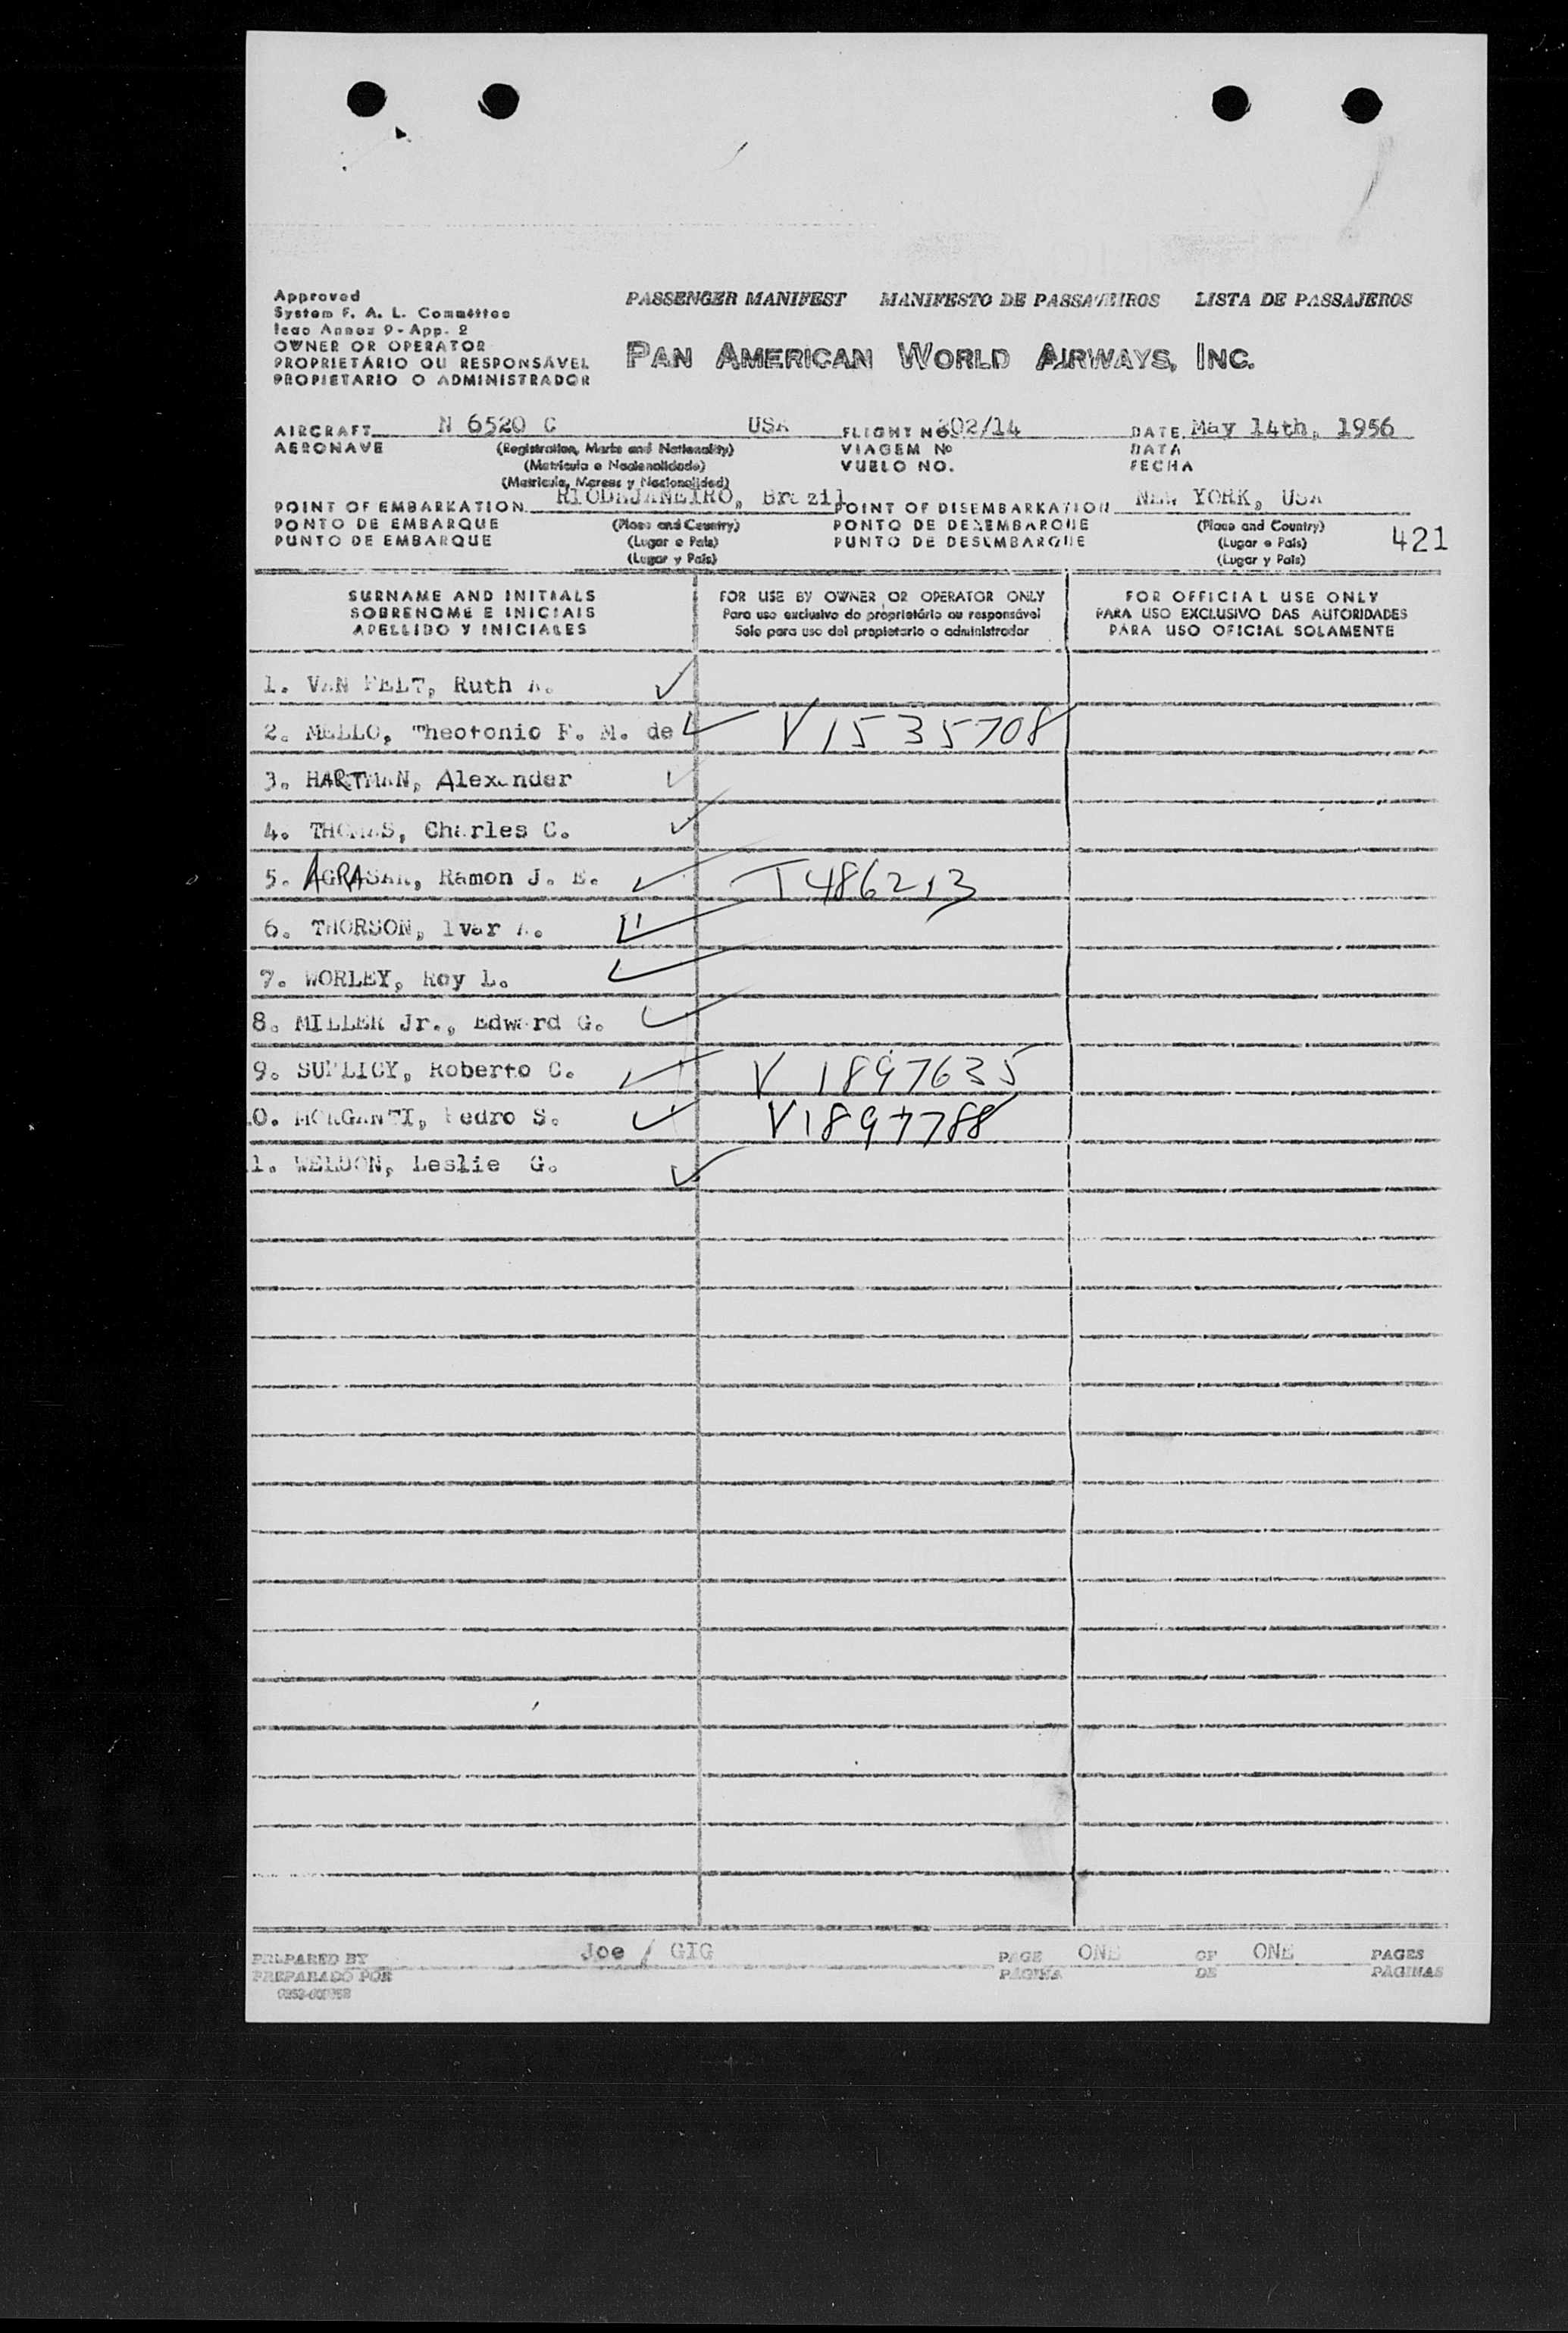 Approved
System F. A. L. Committee
Icao Annex 9 - App. 2
OWNER OR OPERATOR
PROPRIETÁRIO OU RESPONSÁVEL
PROPIETARIO O ADMINISTRADOR
PASSENGER MANIFEST MANIFESTO DE PASSAGEIROS LISTA DE PASSAJEROS
PAN AMERICAN WORLD AIRWAYS, INC.
AIRCRAFT N 6520 C USA FLIGHT NO. 202/14 DATE May 14th, 1956
AERONAVE (Registration, Marks and Nationality) VIAGEM Nº DATA
(Matrícula e Nacionalidade) VUELO NO. FECHA
(Matrícula, Marcas y Nacionalidad)
POINT OF EMBARKATION RIODEJANEIRO, Brazil POINT OF DISEMBARKATION NEW YORK, USA
PONTO DE EMBARQUE (Place and Country) PONTO DE DEZEMBARQUE (Place and Country)
PUNTO DE EMBARQUE (Lugar e País) PUNTO DE DESEMBARQUE (Lugar e País) 421
(Lugar y País) (Lugar y País)
SURNAME AND INITIALS FOR USE BY OWNER OR OPERATOR ONLY FOR OFFICIAL USE ONLY
SOBRENOME E INICIAIS Para uso exclusivo do proprietário ou responsável PARA USO EXCLUSIVO DAS AUTORIDADES
APELLIDO Y INICIALES Solo para uso del propietario o administrador PARA USO OFICIAL SOLAMENTE
1. VAN PELT, Ruth A.
2. MELLO, Theotonio F. M. de V 1535708
3. HARTMAN, Alexander
4. THOMAS, Charles C.
5. AGRASAR, Ramon J. E. T486213
6. THORSON, Ivar A.
7. WORLEY, Roy L.
8. MILLER Jr., Edward G.
9. SUPLICY, Roberto C. V 1897635
0. MORGANTI, Pedro S. V1897788
1. WELDON, Leslie G.
PREPARED BY Joe / GIG PAGE ONE OF ONE PAGES
PREPARADO POR PAGINA DE PAGINAS